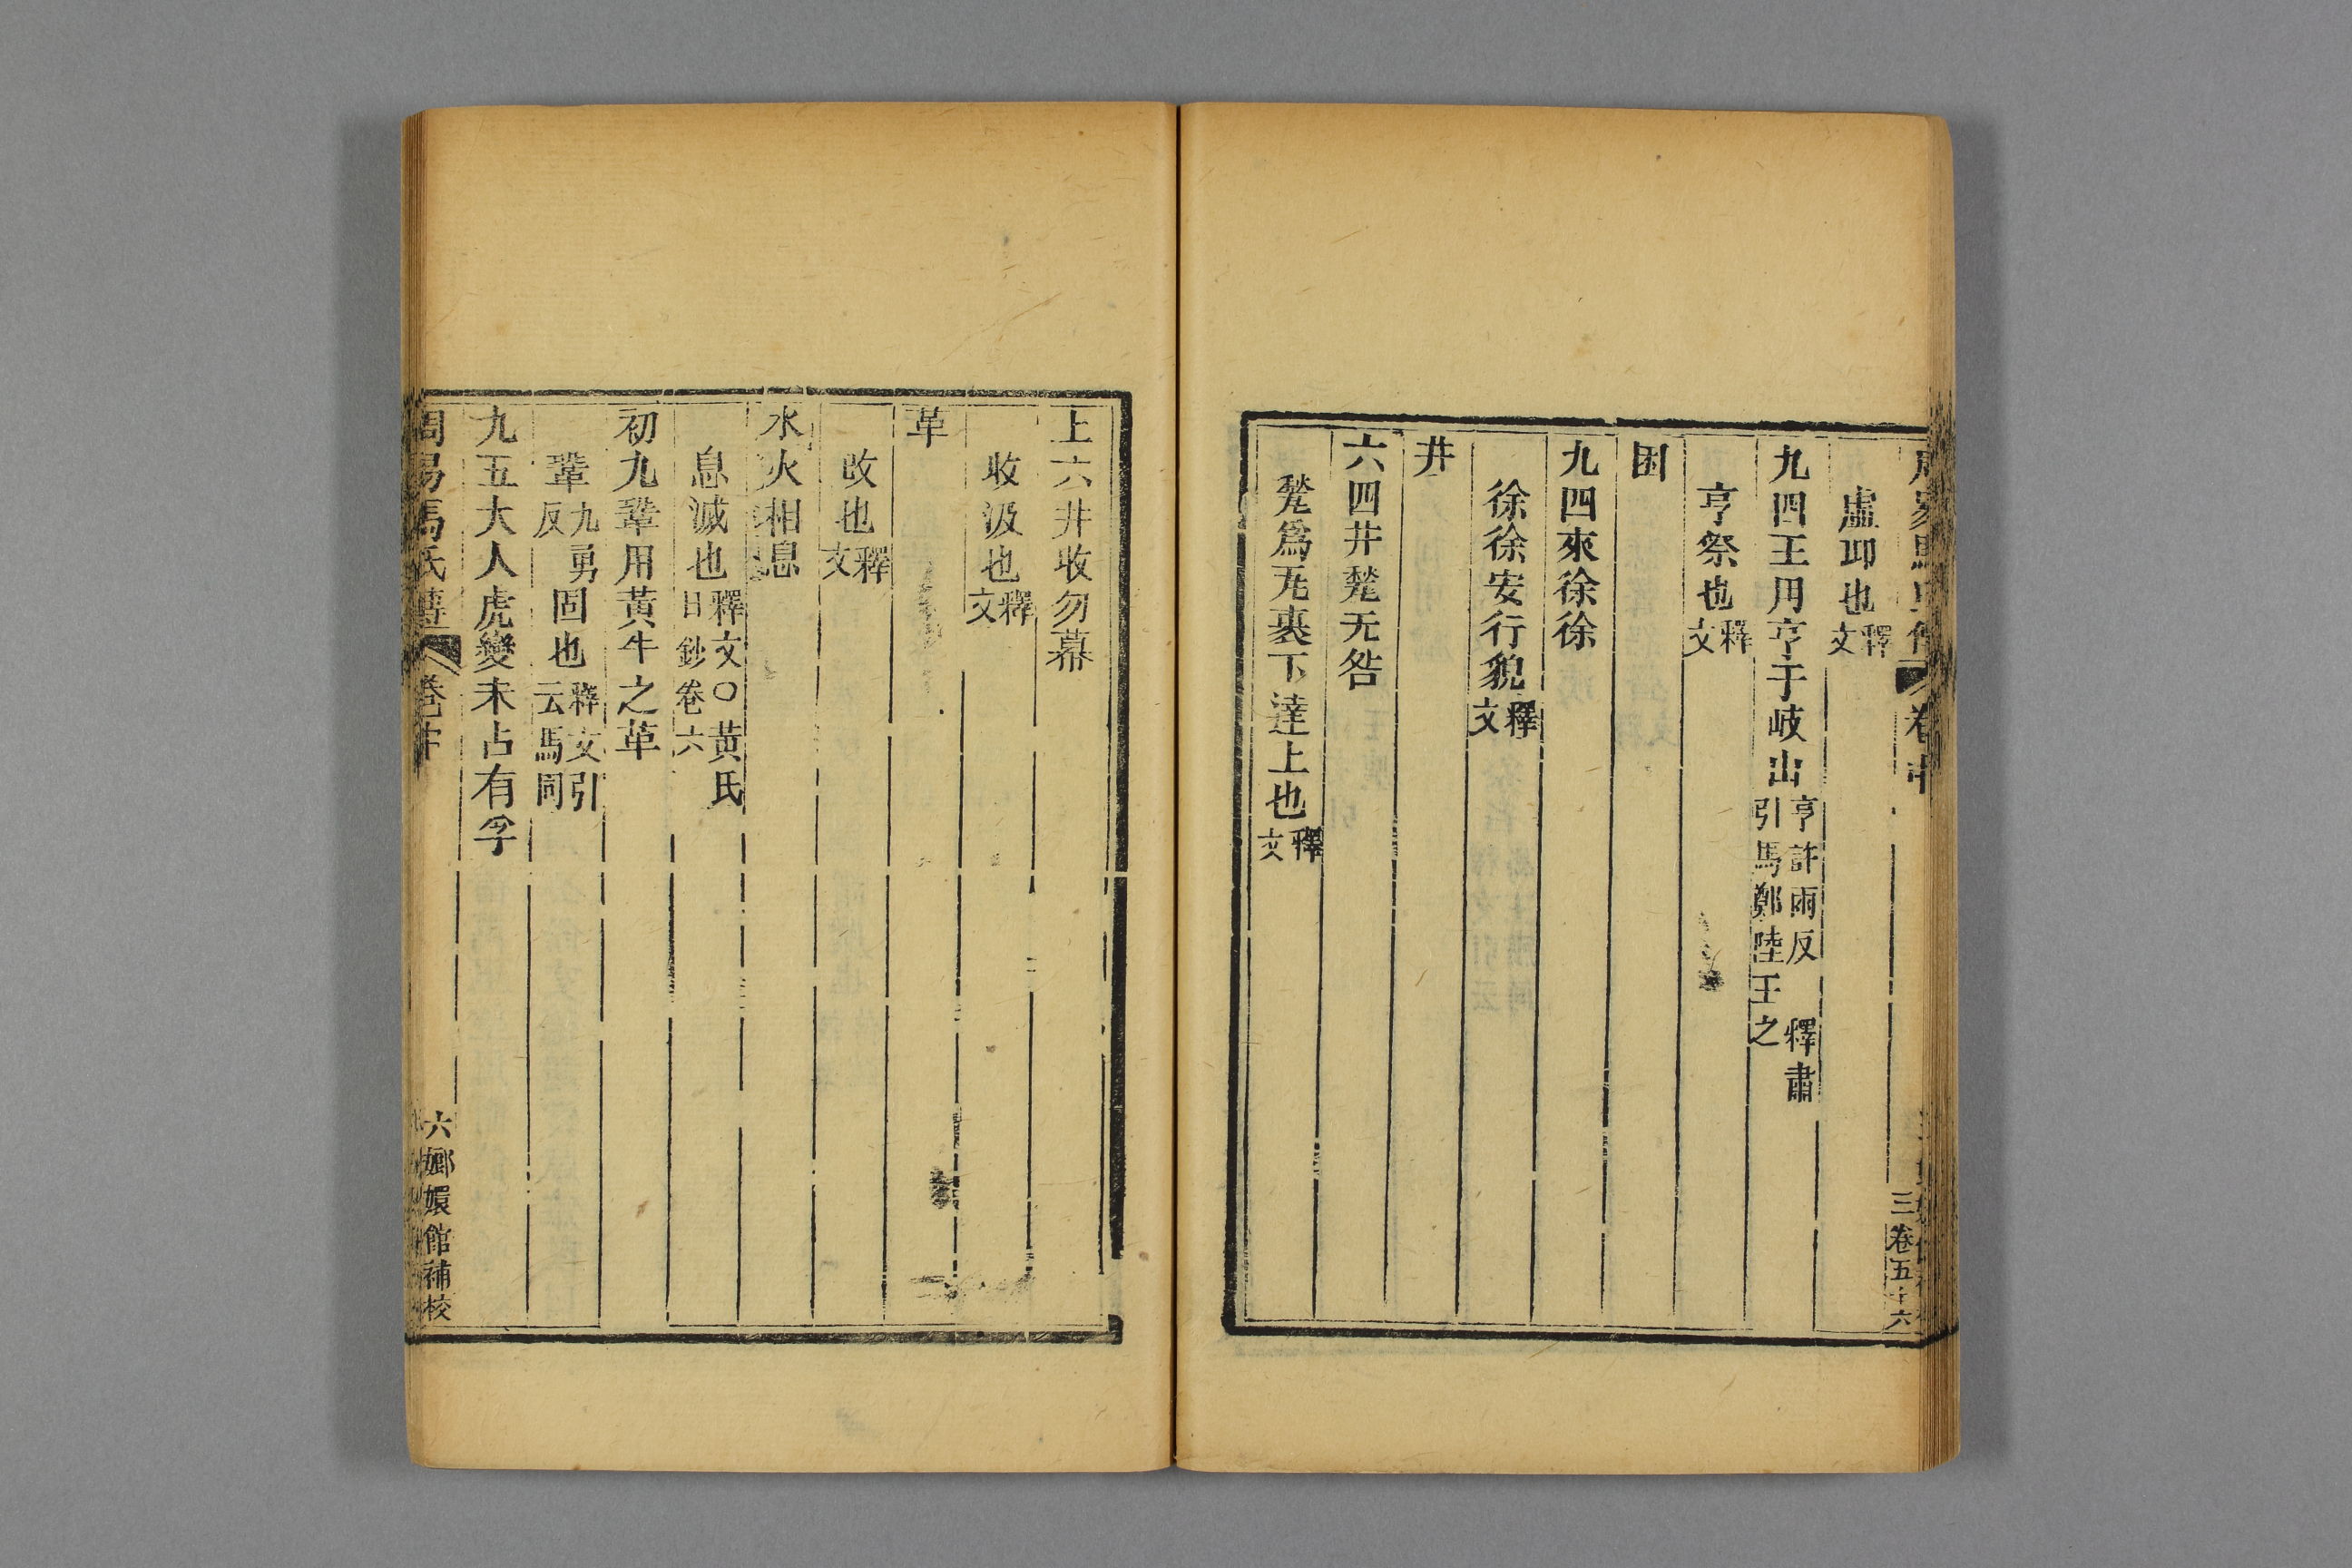 虛 丘也 釋文
九四王用亨于岐山 亨許兩反 釋文引馬鄭陸王肅之
亨祭也 釋文
困
九四來徐徐
徐徐安行貌 釋文
井
六四井甃无咎
甃爲瓦裹下達上也 釋文
三 卷五十六
上六井收勿幕
收汲也 釋文
革
改也 釋文
水火相息
息滅也 釋文〇黃氏日鈔卷六
初九鞏用黃牛之革
鞏 九勇反 固也 釋文引云馬同
九五大人虎變未占有孚
周易馬氏傳 卷中
六 嫏嬛館補校